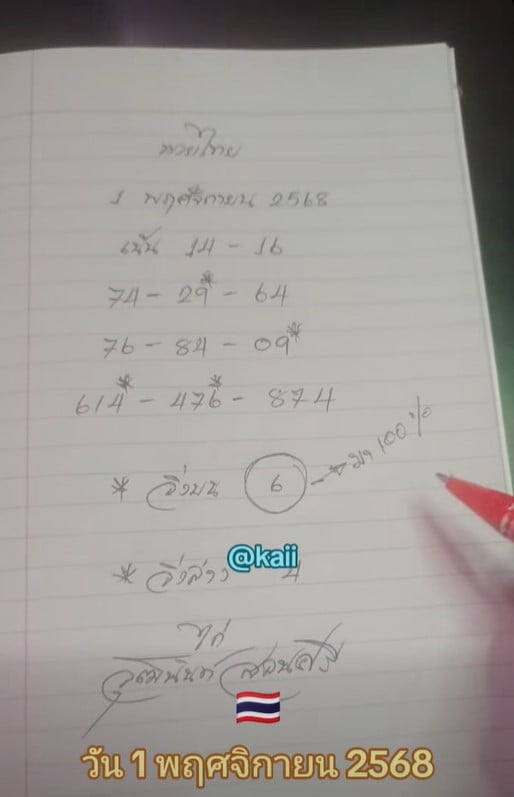 หวยไทย
1 พฤศจิกายน 2568
เน้น 14 - 16
74 - 29* - 64
76 - 84 - 09*
614* - 476* - 874
* วิ่งบน 6 → มา 100%
@kaii
* วิ่งล่าง 4
ไก่
วุฒินันต์
วัน 1 พฤศจิกายน 2568